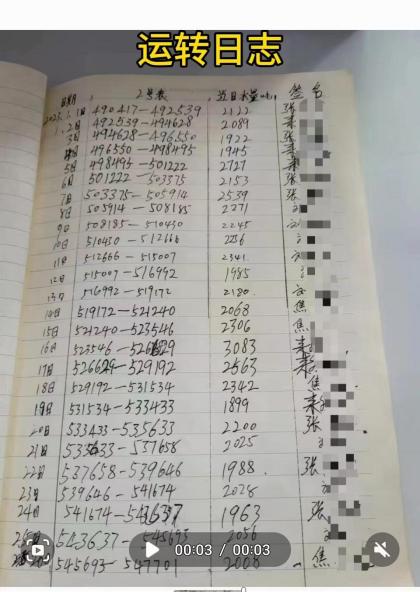 运转日志
日期 2号表 当日水量吨 签名
2023.1.1日 490417-492539 2122 张
1.2日 492539-494628 2089 来
3日 494628-496550 1922 张
4日 496550-498495 1945 来
5日 498495-501222 2727 来
6日 501222-503375 2153 张
7日 503375-505914 2539 张
8日 505914-508185 2271
9日 508185-510430 2245
10日 510430-512666 2236
11日 512666-515007 2341
12日 515007-516992 1985
13日 516992-519172 2180
14日 519172-521240 2068 焦
15日 521240-523546 2306 焦
16日 523546-526629 3083 来
17日 526629-529192 2563 来
18日 529192-531534 2342 焦
19日 531534-533433 1899 来
20日 533433-535633 2200 张
21日 535633-537658 2025
22日 537658-539646 1988 张
23日 539646-541674 2028
24日 541674-543637 1963 张
25日 543637-545693 2056
545693-547701 2008 焦
00:03 / 00:03